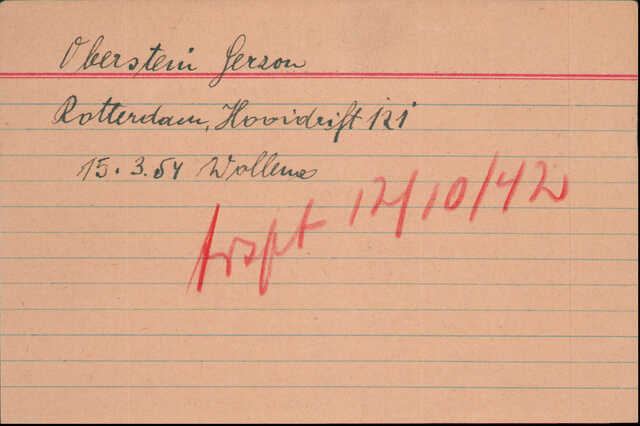 Oberstein Gerzon
Rotterdam, Hooidrift 121
15.3.54 Wollene
trspt 12/10/42